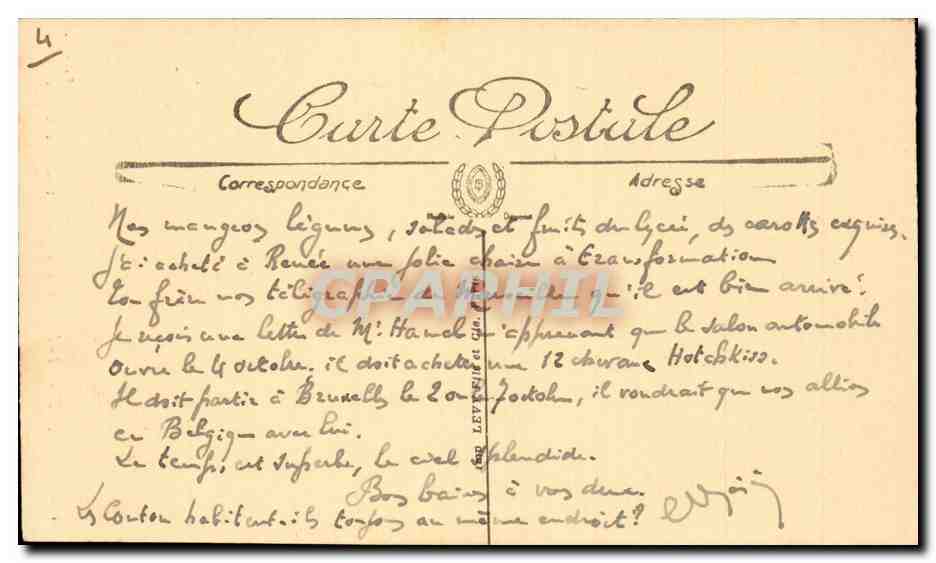 4
Carte Postale
Correspondance
Adresse
Nos mangeons légumes, salades et fruits du lycée, des carottes exquises.
J'ai acheté à Renée une jolie chaise à transformation
Ton frère nos télégraphie de Marseille qu'il est bien arrivé.
CPARPHIL
Je reçois une lettre de Mr Hamel m'apprenant que le salon automobile
ouvre le 4 octobre. il doit acheter une 12 chevaux Hotchkiss.
Il doit partir à Bruxelles le 2 ou 3 octobre, il voudrait que nos allions
en Belgique avec lui.
Le temps est superbe, le ciel splendide.
Bos baisers à vos deux.
Les Couton habitent-ils toujours au même endroit?
Imp LEVY Fils et Cie.